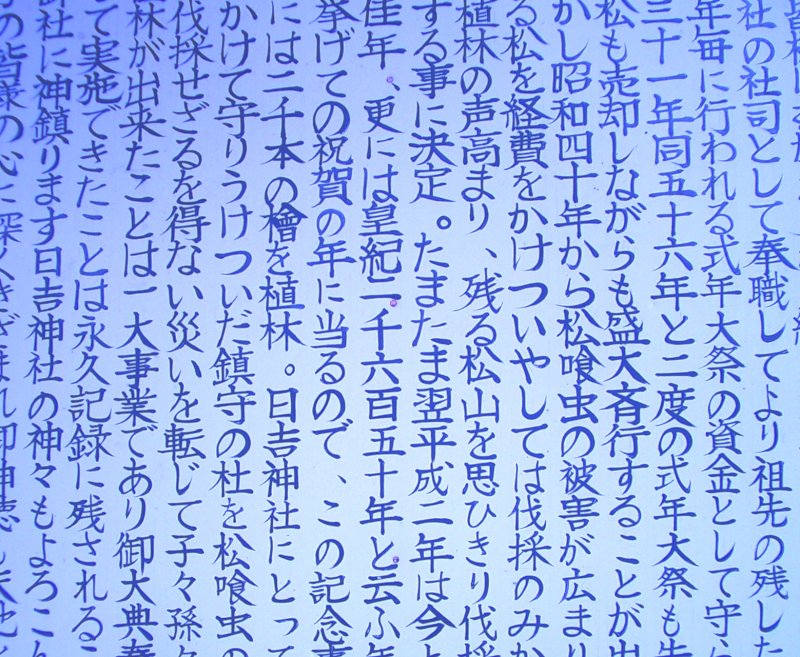 社の社司として奉職してより祖先の残した
年毎に行われる式年大祭の資金として守ら
三十一年同五十六年と二度の式年大祭も
松も売却しながらも盛大斉行することが出
かし昭和四十年から松喰虫の被害が広まり
る松を経費をかけついやしては伐採のみか
植林の声高まり、残る松山を思ひきり伐採
する事に決定。たまたま翌平成二年は今
佳年、更には皇紀二千六百五十年と云ふ年
挙げての祝賀の年に当るので、この記念事
には二千本の檜を植林。日吉神社にとって
かけて守りうけついだ鎮守の杜を松喰虫の
伐採せざるを得ない災いを転じて子々孫々
林が出来たことは一大事業であり御大典奉
て実施できたことは永久記録に残されるこ
社に神鎮ります日吉神社の神々もよろこ
の皆様の心に深く